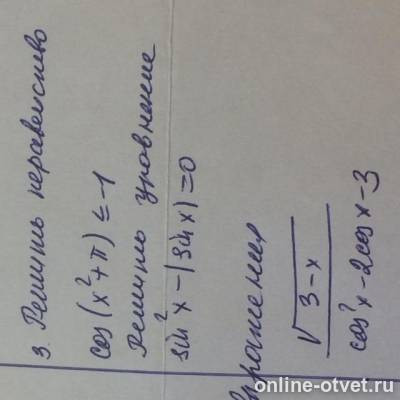 3. Решить неравенство
cos(x²+π) ≤ -1
Решить уравнение
sin²x - |sin x| = 0
√3-x
cos²x - 2cosx - 3
online-otvet.ru